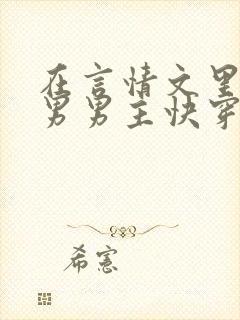 在言情文里
男男主快穿
希宪